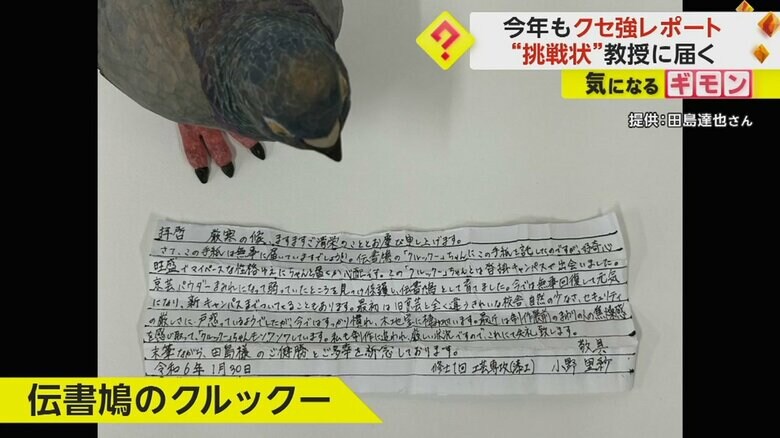 今年もクセ強レポート
“挑戦状”教授に届く
?
気になるギモン
提供:田島達也さん
拝啓 厳寒の候、ますますご清栄のこととお慶び申し上げます。
さて、この手紙は無事に届いていますでしょうか。伝書鳩の「クルックー」ちゃんにこの手紙を託したのですが、好奇心
旺盛でマイペースな性格ゆえにちゃんと届くか心配です。この「クルックー」ちゃんとは旧キャンパスで出会いました。
京芸パウダーまみれになって弱っていたところを見つけ保護し、伝書鳩として育てました。今では無事回復して元気
になり、新キャンパスまでついてくることもあります。最初は旧京芸と全く違うきれいな校舎、自然の少なさ、セキュリティ
の厳しさに戸惑っているようでしたが、今ではすっかり慣れ、最近は制作展前のまわりの人の焦燥感
を感じ取って、クルックーちゃんもソワソワしています。私も制作に追われ、厳しい状況ですので、これにて失礼致します。
末筆ながら、田島様のご健勝とご多幸を祈念しております。 敬具
令和6年1月30日 修士1回 工芸専攻(漆工) 小野 里紗
伝書鳩のクルックー